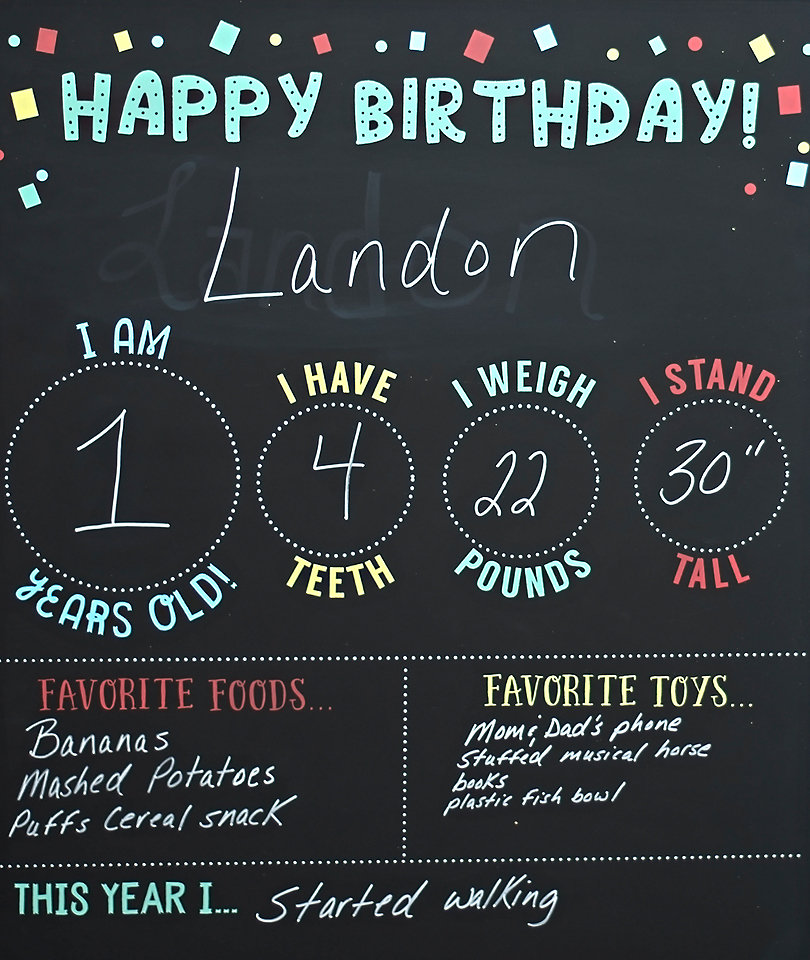 HAPPY BIRTHDAY!
Landon
I AM
1
YEARS OLD!
I HAVE
4
TEETH
I WEIGH
22
POUNDS
I STAND
30"
TALL
FAVORITE FOODS...
Bananas
Mashed Potatoes
Puffs Cereal snack
FAVORITE TOYS...
Mom & Dad's phone
stuffed musical horse
books
plastic fish bowl
THIS YEAR I... Started walking